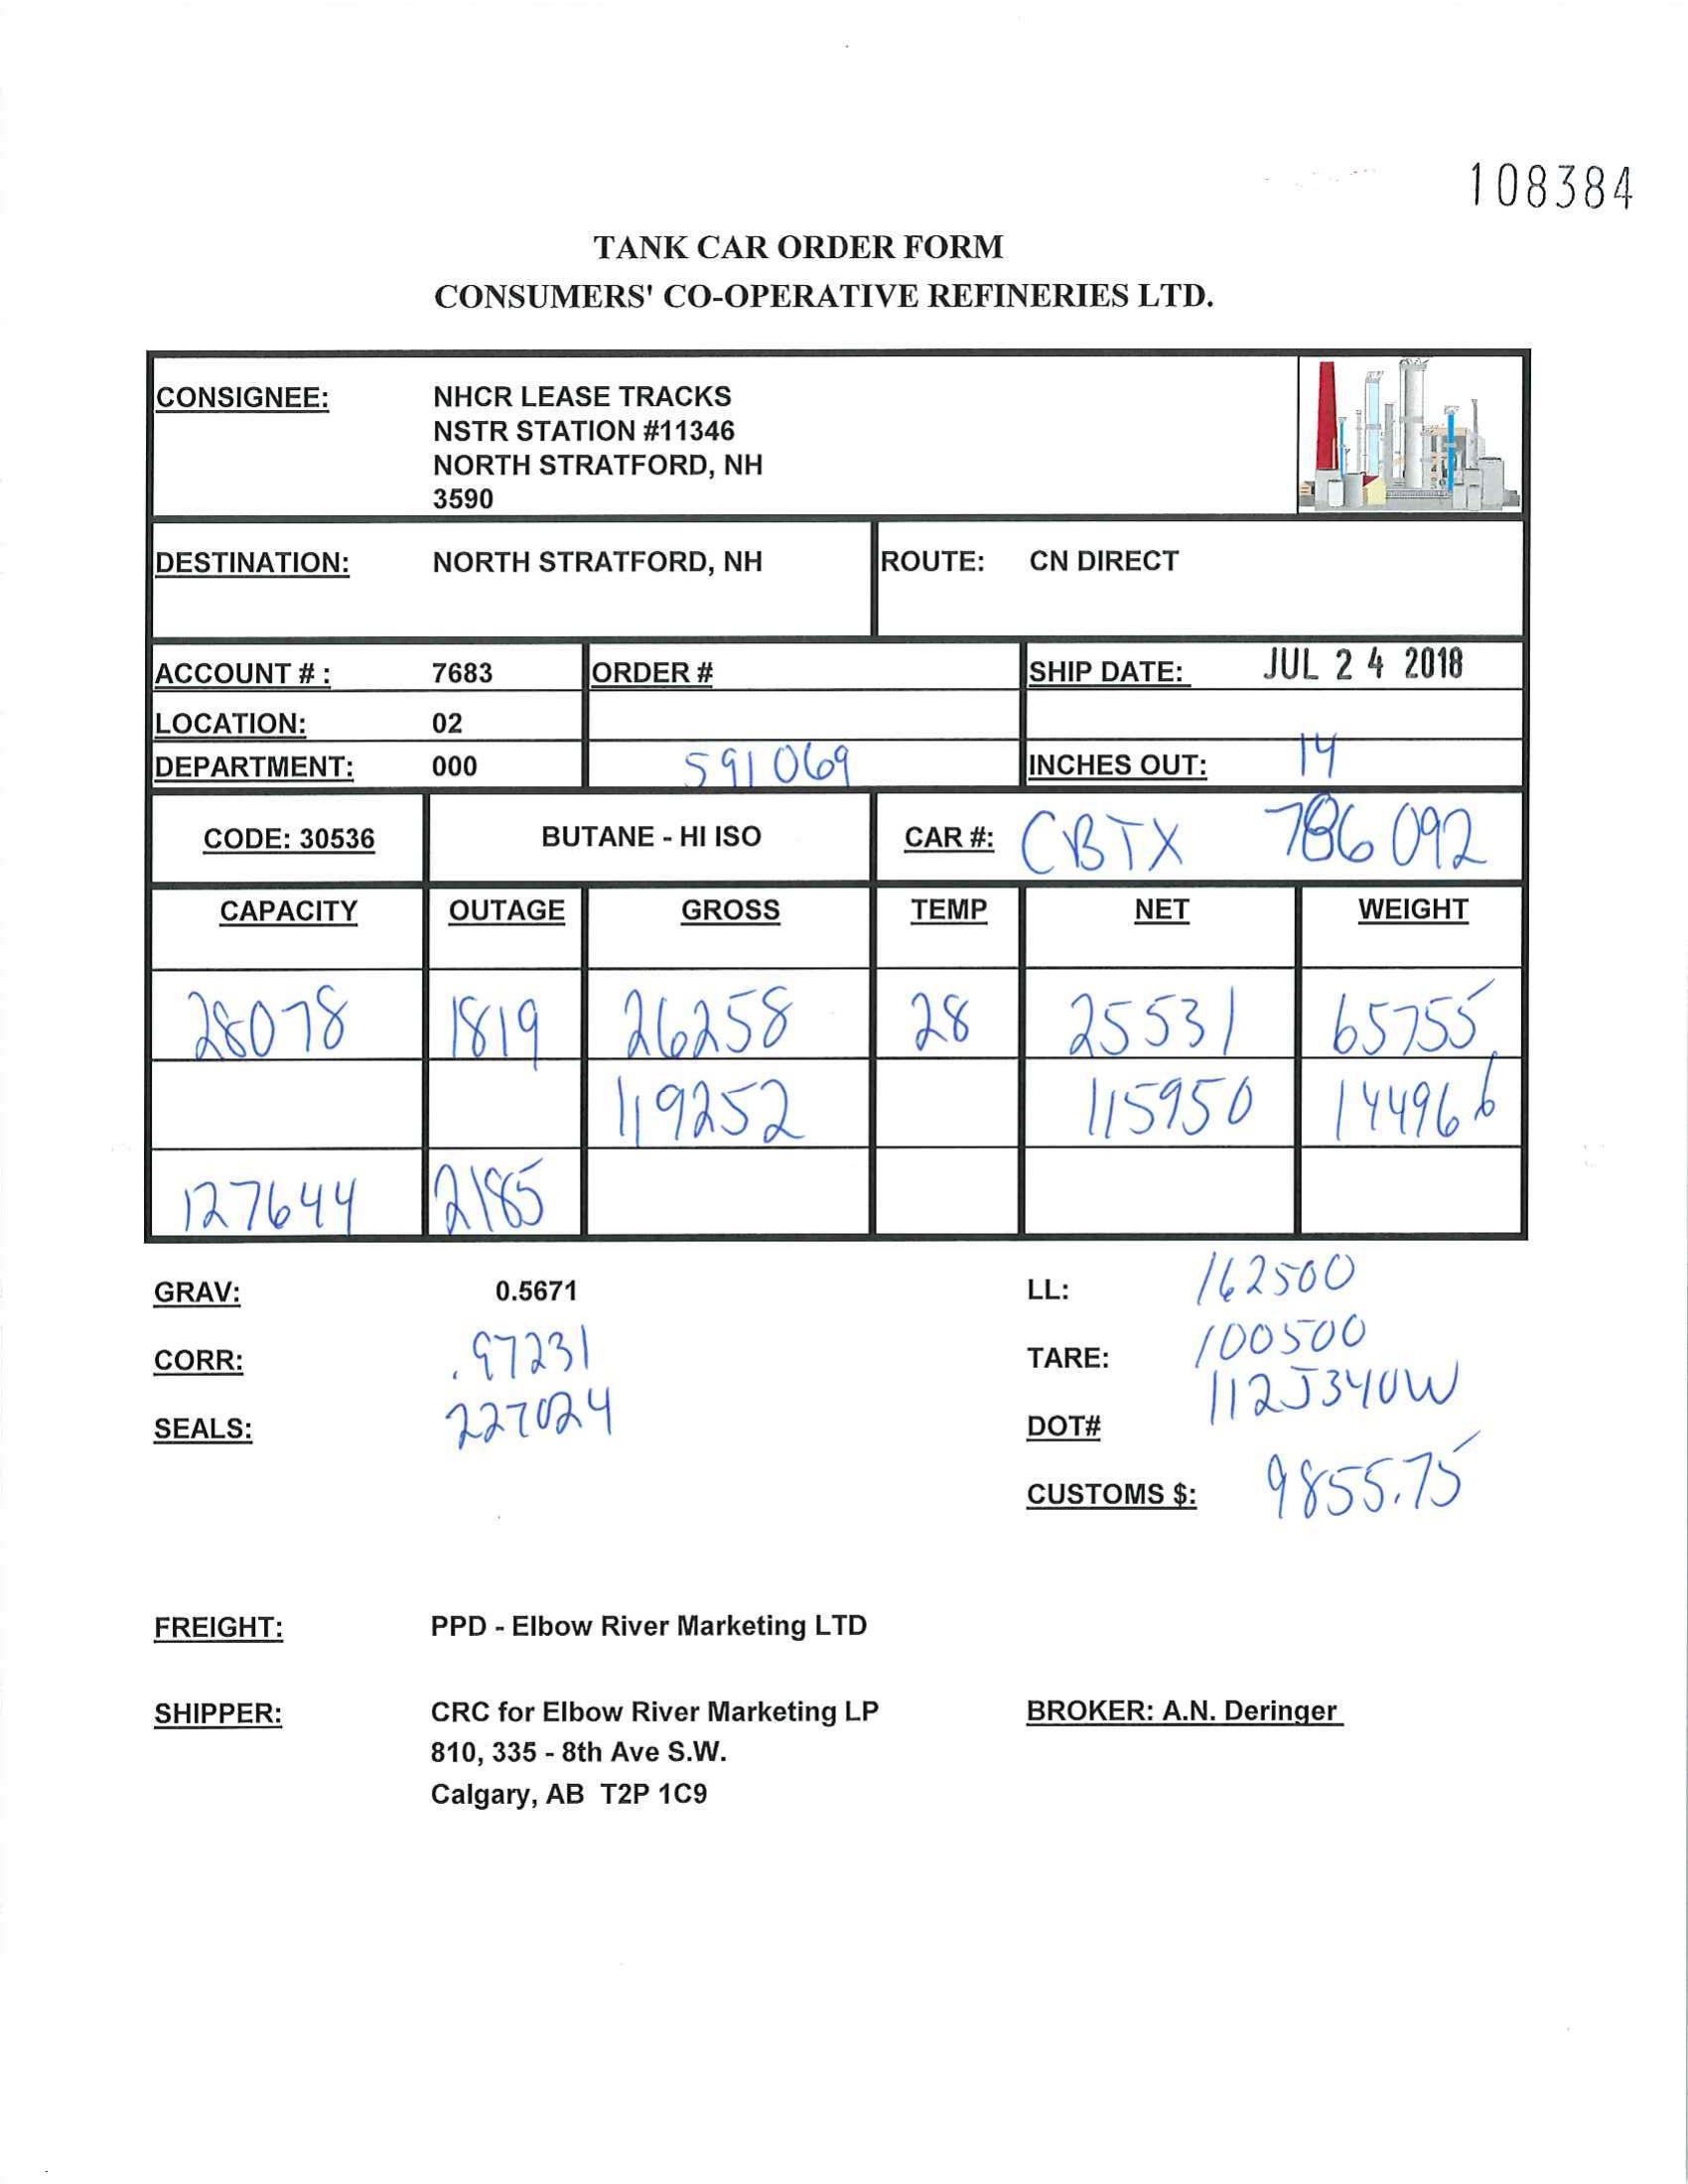 108384
TANK CAR ORDER FORM
CONSUMERS' CO-OPERATIVE REFINERIES LTD.
CONSIGNEE: NHCR LEASE TRACKS
NSTR STATION #11346
NORTH STRATFORD, NH
3590
DESTINATION: NORTH STRATFORD, NH ROUTE: CN DIRECT
ACCOUNT # : 7683 ORDER # SHIP DATE: JUL 24 2018
LOCATION: 02
DEPARTMENT: 000 591069 INCHES OUT: 14
CODE: 30536 BUTANE - HI ISO CAR #: CBTX 786092
CAPACITY OUTAGE GROSS TEMP NET WEIGHT
28078 1819 26258 28 25531 65755
119252 115950 144966
127644 2185
GRAV: 0.5671 LL: 162500
CORR: .97231 TARE: 100500
SEALS: 227024 DOT# 112J340W
CUSTOMS $: 9855.75
FREIGHT: PPD - Elbow River Marketing LTD
SHIPPER: CRC for Elbow River Marketing LP BROKER: A.N. Deringer
810, 335 - 8th Ave S.W.
Calgary, AB T2P 1C9